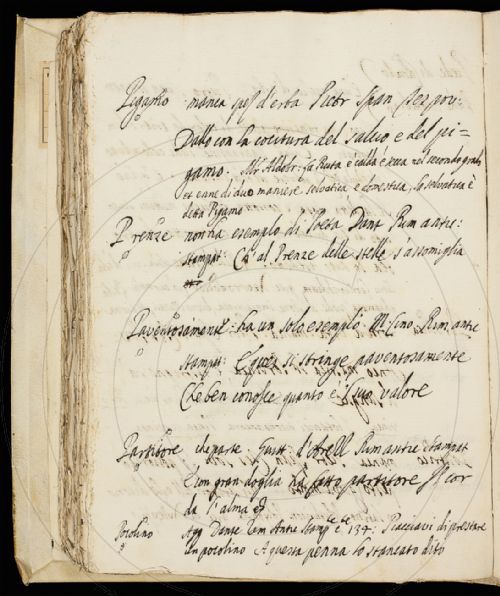 Pigamo manca spe d'erba Pietr Span
Dallo con la cocitura del salvo e del pi=
gamo. Mr Aldobr: La Ruta è calda e secca nel secondo grado
et enne di duo maniere selvatica e domestica, la selvatica è
detta Pigamo
Prenze non ha esemplo di Poeta Dant Rim antic:
stampat: Ch'al Prenze delle stelle s'assomiglia
Paventosamente ha un solo esemplo: M. Cino Rim antic
stampat: E quei si stringe paventosamente
Che ben conosce quanto è il suo valore
Partitore che parte Guitt: d'Arezzo Rim antic stampat
E con gran doglia fatto partitore
da l'alma
Pocolino Agg Dante Rim Antic stamp 134: Piacciavi di prestare
Un pocolino A questa penna lo stancato dito